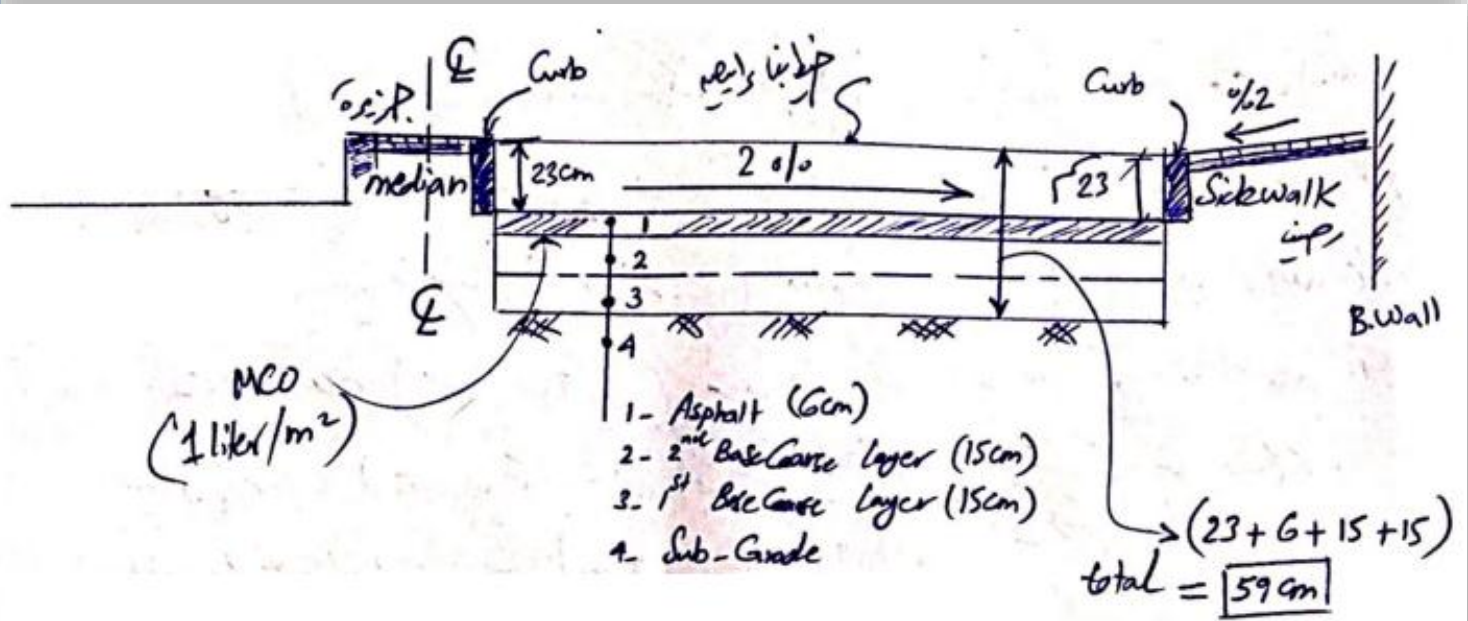 ℄
Curb
Curb
%2
جزيرة
median
23cm
2 %
23
Sidewalk
رصيف
1
2
3
4
℄
B.Wall
MCO
(1 liter/m²)
1- Asphalt (6cm)
2- 2nd Base Coarse layer (15cm)
3- 1st Base Coarse layer (15cm)
4- Sub-Grade
(23 + 6 + 15 + 15)
total = 59 cm